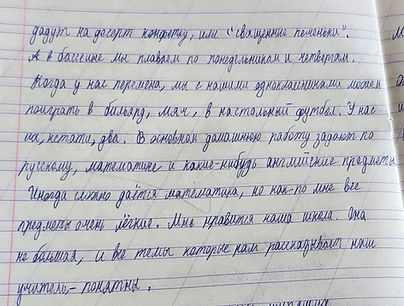 дадут на десерт конфетку, или "священные печеньки".
А в бассеине мы плаваем по понедельникам и четвергам.
Когда у нас перемена, мы с нашими одноклассниками можем
поиграть в бильярд, мяч, в настольный футбол. У нас
их, кстати, два. В основном домашнюю работу задают по
русскому, математике и какие-нибудь английские предметы
Иногда сложно даётся математика, но как по мне все
предметы очень лёгкие. Мне нравится наша школа. Она
не большая, и все темы которые нам рассказывает наш
учитель - понятны.